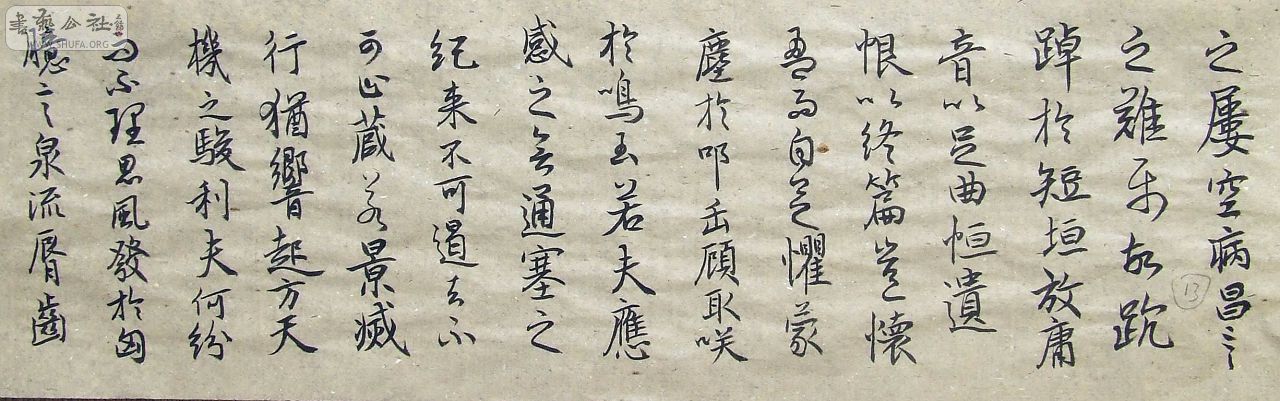 之屢空病昌言
之難屬故踸
踔於短垣放庸
音以足曲恒遺
恨以終篇豈懷
盈而自足懼蒙
塵於叩缶顧取咲
於鳴玉若夫應
感之會通塞之
紀来不可遏去不
可止藏若景滅
行猶響起方天
機之駿利夫何紛
而不理思風發於匈
臆言泉流脣齒
13
書藝公社
WWW.SHUFA.ORG